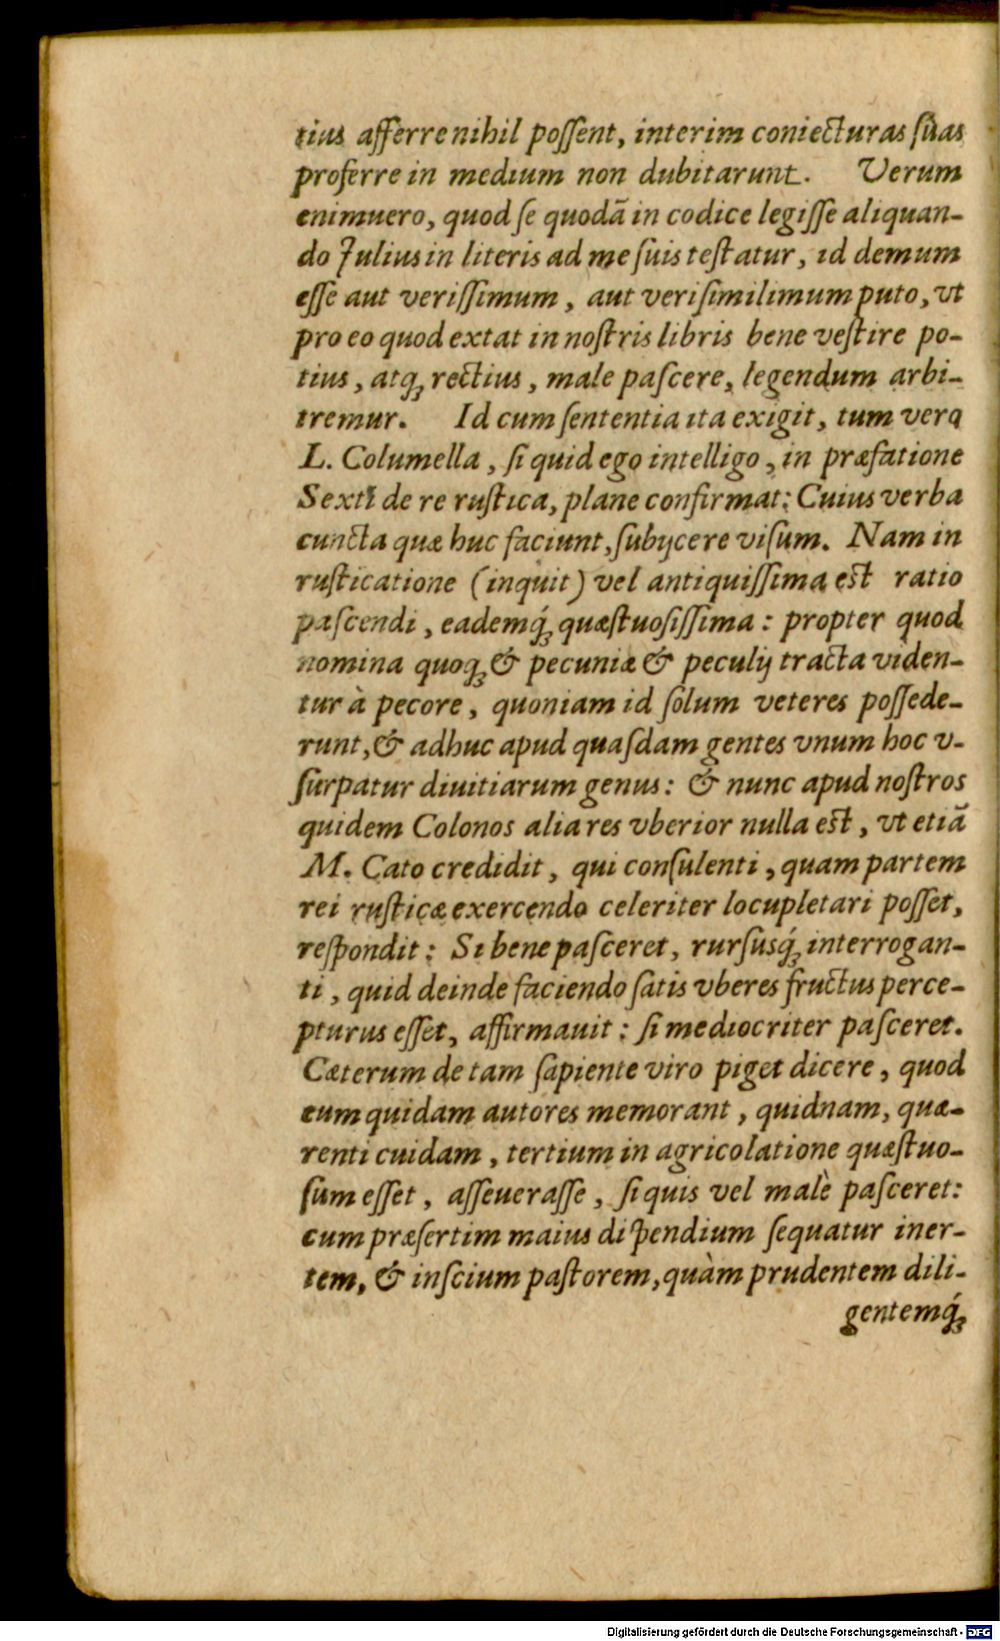 tius afferre nihil poſſent, interim coniecturas ſuas
proferre in medium non dubitarunt. Verum
enimuero, quod ſe quodã in codice legiſſe aliquan-
do Julius in literis ad me ſuis teſtatur, id demum
eſſe aut veriſſimum, aut veriſimilimum puto, vt
pro eo quod extat in noſtris libris bene veſtire po-
tius, atq́ꝫ rectius, male paſcere, legendum arbi-
tremur. Id cum ſententia ita exigit, tum vero
L. Columella, ſi quid ego intelligo, in præfatione
Sexti de re ruſtica, plane confirmat: Cuius verba
cuncta quæ huc faciunt, ſubijcere viſum. Nam in
ruſticatione (inquit) vel antiquiſſima eſt ratio
paſcendi, eademq́ꝫ quæſtuoſiſſima: propter quod
nomina quoqꝫ & pecuniæ & peculij tracta viden-
tur à pecore, quoniam id ſolum veteres poſſede-
runt, & adhuc apud quaſdam gentes vnum hoc v-
ſurpatur diuitiarum genus: & nunc apud noſtros
quidem Colonos alia res vberior nulla eſt, vt etiã
M. Cato credidit, qui conſulenti, quam partem
rei ruſticæ exercendo celeriter locupletari poſſet,
reſpondit: Si bene paſceret, rurſusq́ꝫ interrogan-
ti, quid deinde faciendo ſatis vberes fructus perce-
pturus eſſet, affirmauit: ſi mediocriter paſceret.
Cæterum de tam ſapiente viro piget dicere, quod
eum quidam autores memorant, quidnam, quæ-
renti cuidam, tertium in agricolatione quæſtuo-
ſum eſſet, aſſeueraſſe, ſi quis vel malè paſceret:
cum præſertim maius diſpendium ſequatur iner-
tem, & inſcium paſtorem, quàm prudentem dili-
gentemq́ꝫ
Digitalisierung gefördert durch die Deutsche Forschungsgemeinschaft - DFG